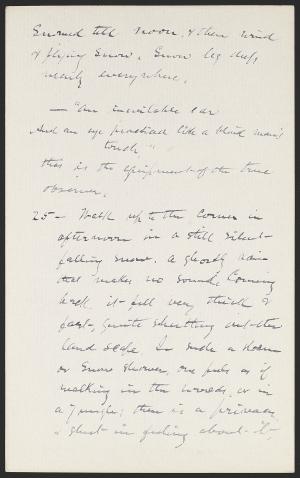 Snowed till noon, & then wind
& flying snow. Snow leg deep
nearly everywhere.
— "An inevitable ear
And an eye practiced like a blind man's
touch"
this is the equipment of the true
observer.
25 — Walk up to the corner in
afternoon in a still silent
falling snow. A ghostly rain
that makes no sound. Coming
back it fell very thick &
fast, quite shutting out the
landscape. In such a storm
or snow shower, one feels as if
walking in the woods, or in
a jungle; there is a privacy
& shut in feeling about it,